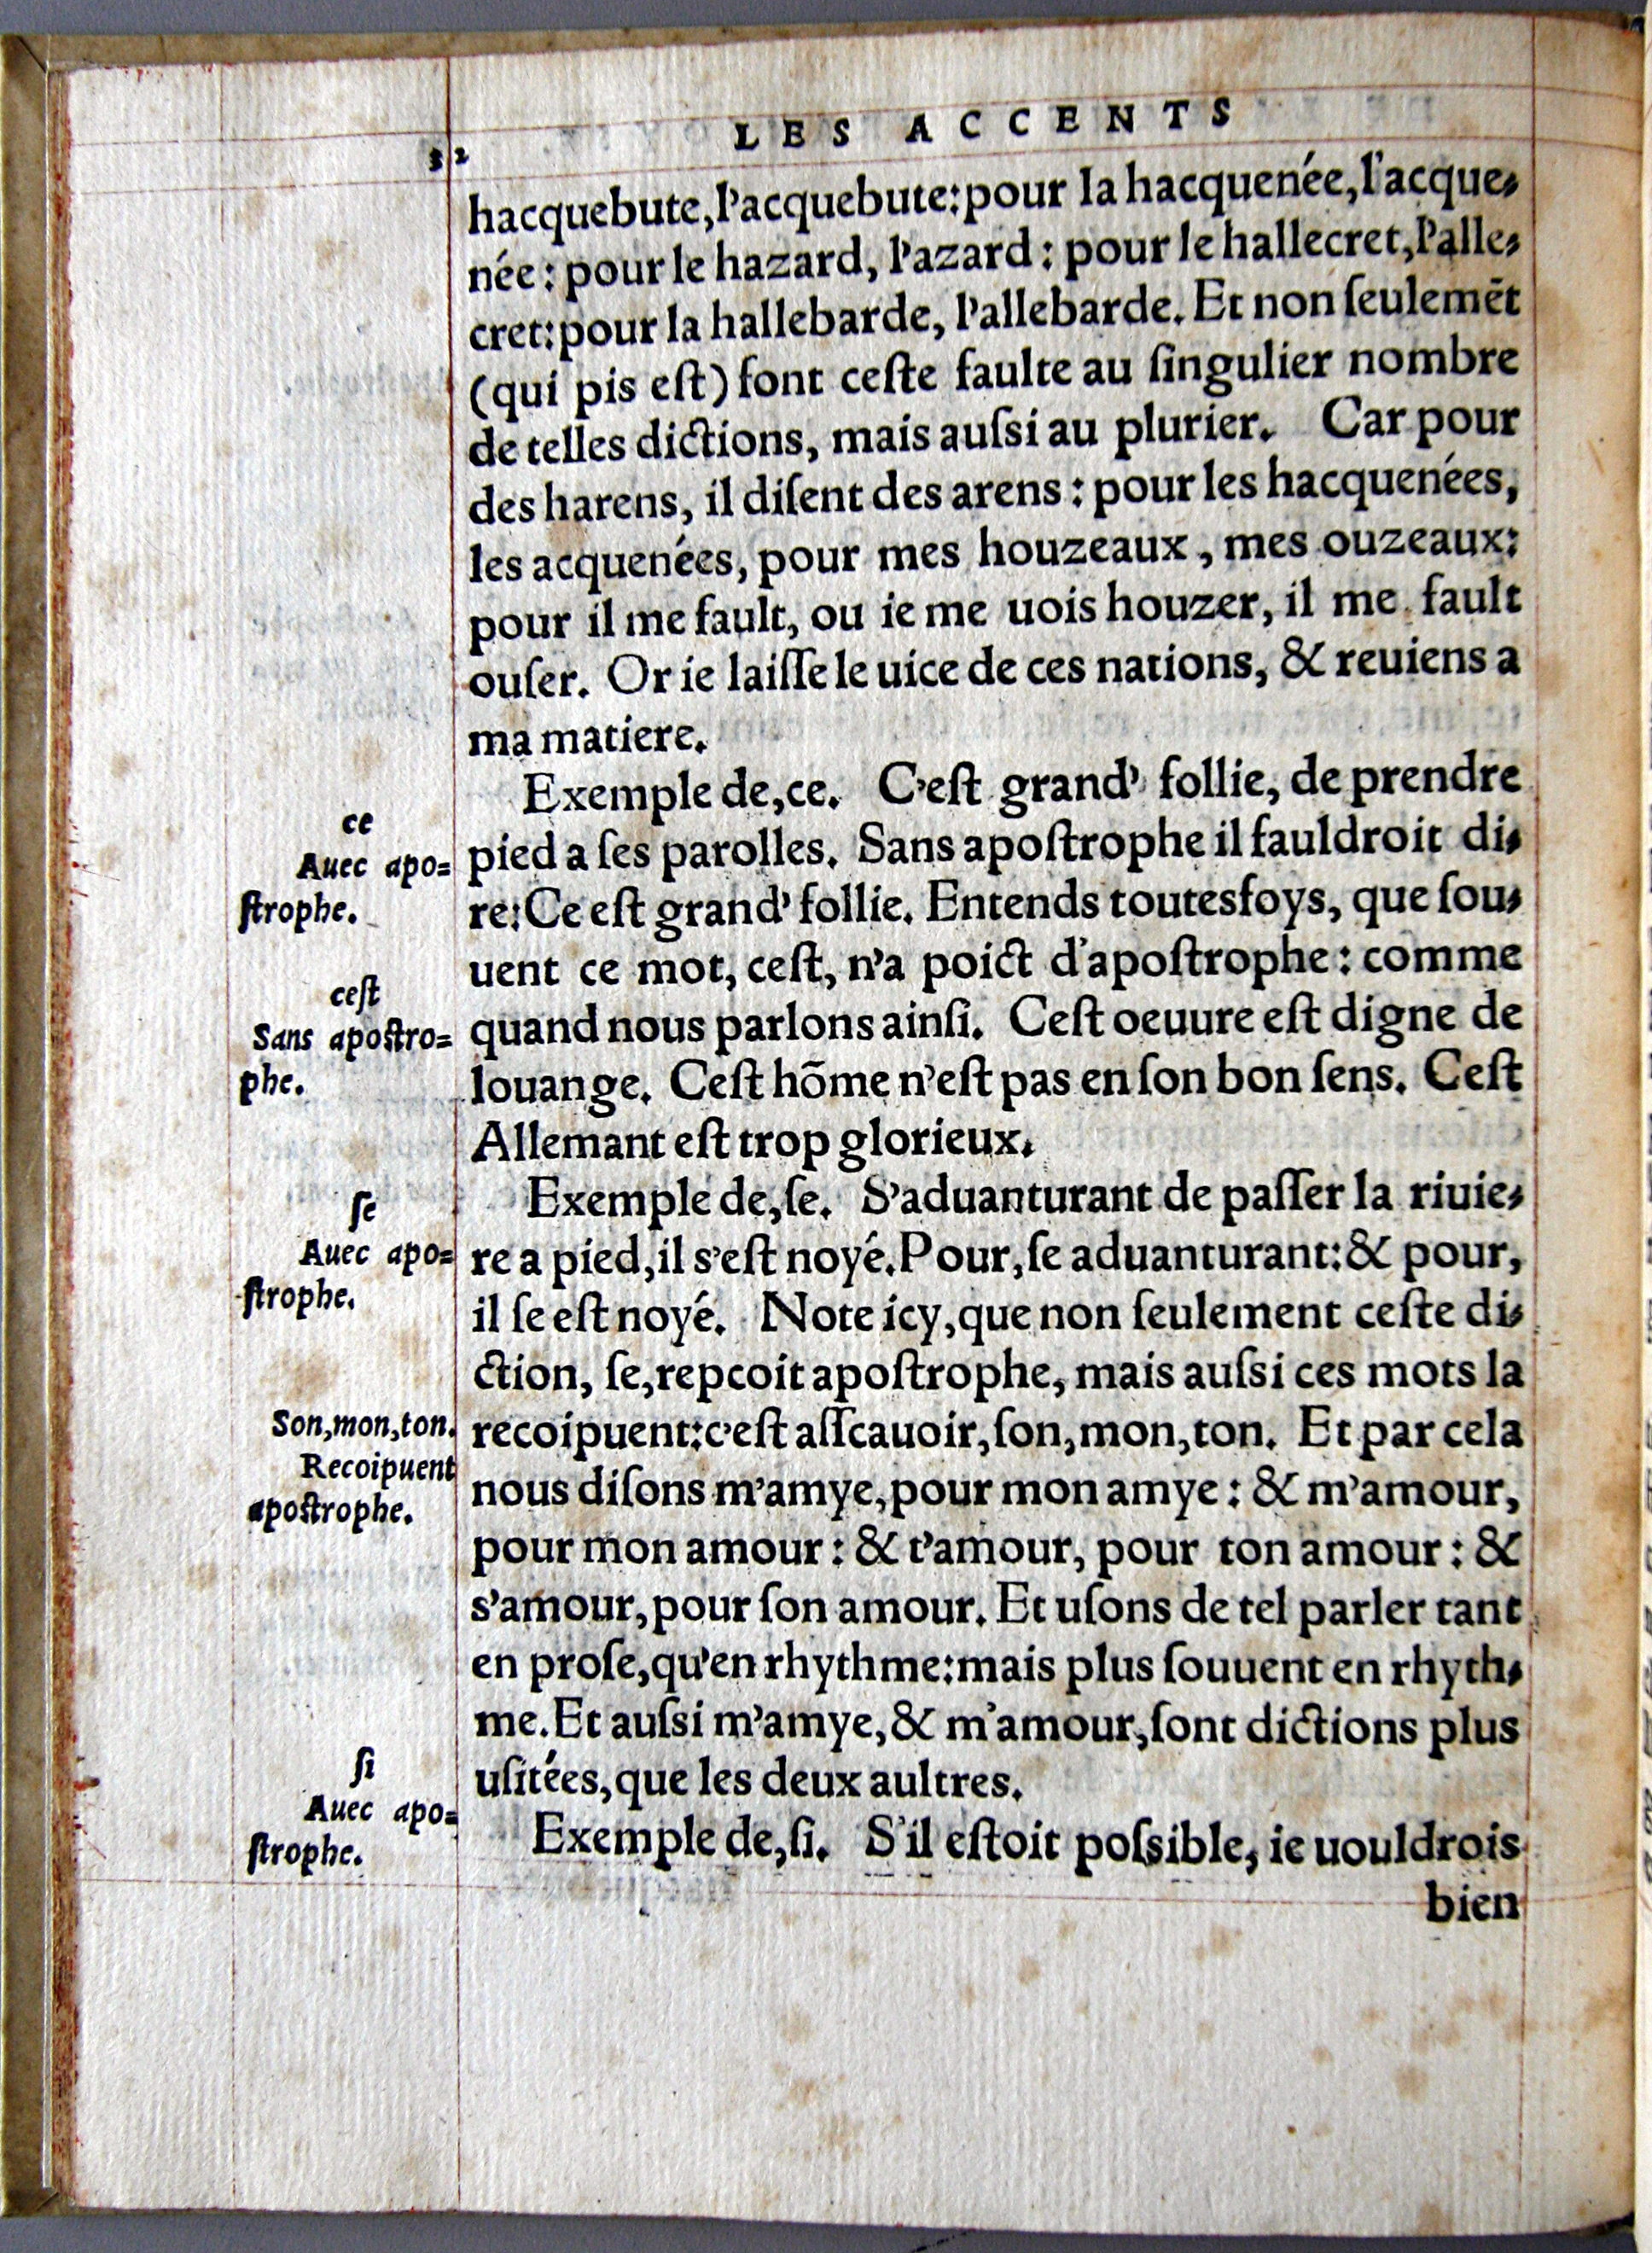 LES ACCENTS
32
hacquebute,l'acquebute:pour la hacquenée,l'acque-
née: pour le hazard, l'azard: pour le hallecret,l'alle-
cret:pour la hallebarde, l'allebarde. Et non ſeulemēt
(qui pis eſt) font ceſte faulte au ſingulier nombre
de telles dictions, mais auſsi au plurier. Car pour
des harens, il diſent des arens: pour les hacquenées,
les acquenées, pour mes houzeaux, mes ouzeaux:
pour il me fault, ou ie me uois houzer, il me fault
ouſer. Or ie laiſſe le uice de ces nations, & reuiens a
ma matiere.
Exemple de,ce. C'eſt grand' follie, de prendre
ce
pied a ſes parolles. Sans apoſtrophe il fauldroit di-
Auec apo=
re:Ce eſt grand' follie. Entends toutesfoys, que ſou-
ſtrophe.
uent ce mot, ceſt, n'a poict d'apoſtrophe: comme
ceſt
quand nous parlons ainſi. Ceſt oeuure eſt digne de
Sans apoſtro=
louange. Ceſt hōme n'eſt pas en ſon bon ſens. Ceſt
phe.
Allemant eſt trop glorieux.
Exemple de,ſe. S'aduanturant de paſſer la riuie-
ſe
re a pied,il s'eſt noyé.Pour,ſe aduanturant:& pour,
Auec apo=
il ſe eſt noyé. Note icy,que non ſeulement ceſte di-
ſtrophe.
ction, ſe,repcoit apoſtrophe, mais auſsi ces mots la
recoipuent:c'eſt aſſcauoir,ſon,mon,ton. Et par cela
Son,mon,ton.
nous diſons m'amye,pour mon amye: & m'amour,
Recoipuent
pour mon amour: & t'amour, pour ton amour: &
apoſtrophe.
s'amour,pour ſon amour. Et uſons de tel parler tant
en proſe,qu'en rhythme:mais plus ſouuent en rhyth-
me.Et auſsi m'amye,& m'amour,ſont dictions plus
uſitées,que les deux aultres.
ſi
Exemple de,ſi. S'il eſtoit poſsible, ie uouldrois
Auec apo=
ſtrophe.
bien